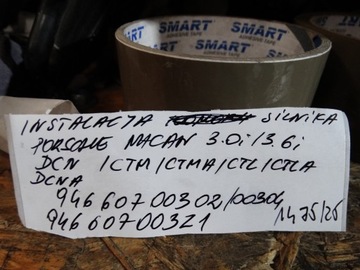 SMART
ADHESIVE TAPE
SMART
SMART
INSTALACJA SILNIKA
PORSCHE MACAN 3.0i/3.6i
DCN /CTM/CTMA/CTL/CTLA
DCNA
94660700302/00304
94660700321
1475/25